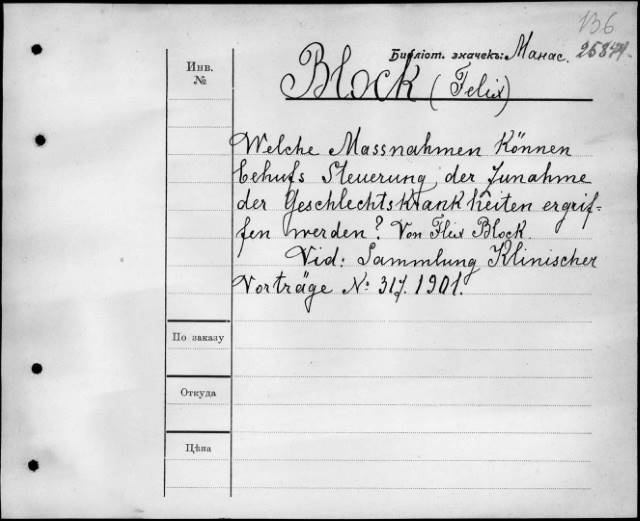 136
Библіот. значекъ: Манас. 25844.
Инв.
№
Block (Felix)
Welche Massnahmen können
behufs Steuerung der Zunahme
der Geschlechtskrankheiten ergrif=
fen werden? Von Flix Block.
Vid: Sammlung Klinischer
Vorträge №: 317. 1901.
По заказу
Откуда
Цѣна